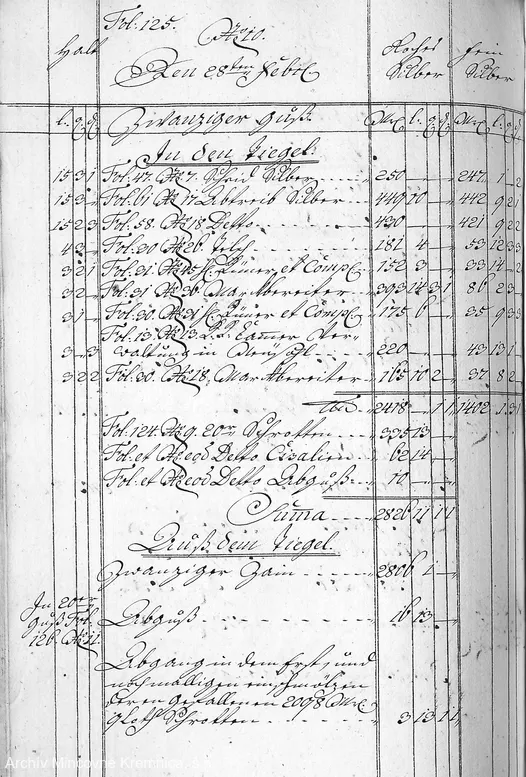 Fol: 125. No 10.
Halt
Den 28ten Febr
Roches Silber
fein Silber
l. q d
Zwanziger Guß.
Mk l. q d
Mk l. q d
In den Tiegel.
15 3 1 Fol: 47. No 7. Silber 250 — — — 247 1 — 2
15 3 — Fol: 61 No 17. Abtreib Silber 449 10 — — 442 9 2 1
15 2 3 Fol: 58. No 18. Detto 430 — — — 421 9 2 2
4 3 — Fol: 30 No 26. 181 4 — — 53 12 3
3 2 1 Fol: 31. No 45 et Comp. 152 3 — — 33 14 — 2
3 2 — Fol: 31 No 36. Marktbereiter 393 14 3 1 86 2 3 —
3 1 — Fol: 30. No 31 et Comp. 175 6 — — 35 9 3 3
Fol: 13. No 13. Cammer Ver-
3 — 3 waltung in 220 — — — 43 13 1
3 2 2 Fol: 30. No 18. Marktbereiter 165 10 2 — 37 8 2 —
2418 — 1 1 1402 1 3 1
Fol: 124. No 9. 20er Schrotten 335 13 —
Fol: et No eod Detto Cisalien 62 14 —
Fol: et No eod Detto Abguß 10 — —
Summa 2826 11 1 1
Auß dem Tiegel.
Zwanziger Zain 2806 1 —
In 20er
Guß Fol:
126. No 11
Abguß 16 13 —
Abgang in dem Erst, und
nochmalligen einschmölzen
deren gefallenen 2098 Mk
Schrotten 3 13 1 1
Archív Mincovne Kremnica, š.p.